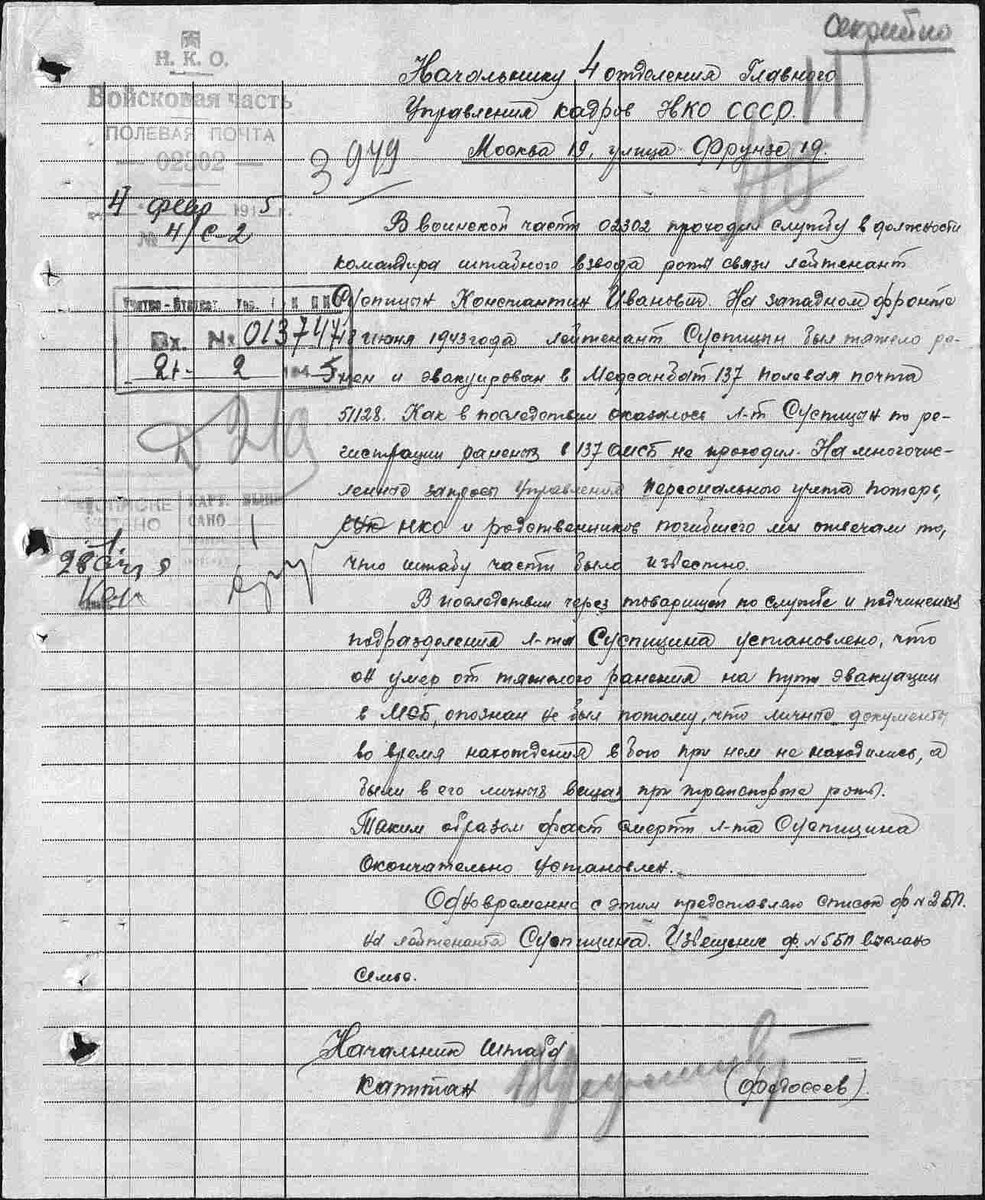 Секретно
Н.К.О.
Войсковая часть
ПОЛЕВАЯ ПОЧТА
02302
4 февр 1945 г.
№ 4/с-2
Начальнику 4 отделения Главного
Управления кадров НКО СССР.
Москва 19, улица Фрунзе 19.
3979
В воинской части 02302 проходил службу в должности
командира штабного взвода роты связи лейтенант
Суспицын Константин Иванович. На западном фронте
июня 1943 года лейтенант Суспицин был тяжело ра-
нен и эвакуирован в Медсанбат 137 полевая почта
51128. Как в последствии оказалось л-т Суспицын по ре-
гистрации раненых в 137 ОМСБ не проходил. На многочис-
ленные запросы Управления персонального учета потерь,
НКО и родственников погибшего мы отвечали то,
что штабу части было известно.
В последствии через товарищей по службе и подчиненых
подразделения л-та Суспицина установлено, что
он умер от тяжелого ранения на пути эвакуации
в МСБ, опознан не был потому, что личные документы
во время нахождения в бою при нем не находились, а
были в его личных вещах при транспорте роты.
Таким образом факт смерти л-та Суспицина
окончательно установлен.
Одновременно с этим представляю список ф №2БП.
на лейтенанта Суспицина. Извещение ф №5БП выслано
семье.
Вх. № 013747
21 2 1945
КАРТ.
САНО
Начальник штаба
капитан